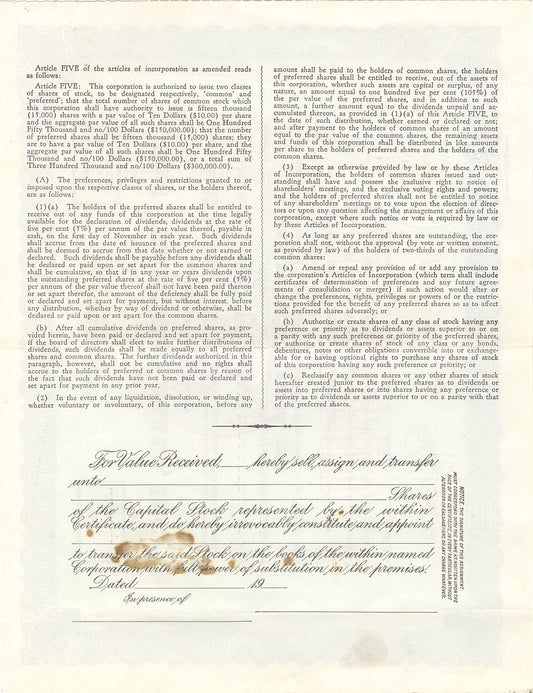 Article FIVE of the articles of incorporation as amended reads
as follows:
Article FIVE: This corporation is authorized to issue two classes
of shares of stock, to be designated respectively, 'common' and
'preferred'; that the total number of shares of common stock which
this corporation shall have authority to issue is fifteen thousand
(15,000) shares with a par value of Ten Dollars ($10.00) per share
and the aggregate par value of all such shares shall be One Hundred
Fifty Thousand and no/100 Dollars ($150,000.00); that the number
of preferred shares shall be fifteen thousand (15,000) shares; they
are to have a par value of Ten Dollars ($10.00) per share, and the
aggregate par value of all such shares shall be One Hundred Fifty
Thousand and no/100 Dollars ($150,000.00), or a total sum of
Three Hundred Thousand and no/100 Dollars ($300,000.00).
(A) The preferences, privileges and restrictions granted to or
imposed upon the respective classes of shares, or the holders thereof,
are as follows:
(1)(a) The holders of the preferred shares shall be entitled to
receive out of any funds of this corporation at the time legally
available for the declaration of dividends, dividends at the rate of
five per cent (5%) per annum of the par value thereof, payable in
cash, on the first day of November in each year. Such dividends
shall accrue from the date of issuance of the preferred shares and
shall be deemed to accrue from that date whether or not earned or
declared. Such dividends shall be payable before any dividends shall
be declared or paid upon or set apart for the common shares and
shall be cumulative, so that if in any year or years dividends upon
the outstanding preferred shares at the rate of five per cent (5%)
per annum of the par value thereof shall not have been paid thereon
or set apart therefor, the amount of the deficiency shall be fully paid
or declared and set apart for payment, but without interest, before
any distribution, whether by way of dividend or otherwise, shall be
declared or paid upon or set apart for the common shares.
(b) After all cumulative dividends on preferred shares, as pro-
vided herein, have been paid or declared and set apart for payment,
if the board of directors shall elect to make further distributions of
dividends, such dividends shall be made equally to all preferred
shares and common shares. The further dividends authorized in this
paragraph, however, shall not be cumulative and no rights shall
accrue to the holders of preferred or common shares by reason of
the fact that such dividends have not been paid or declared and
set apart for payment in any prior year.
(2) In the event of any liquidation, dissolution, or winding up,
whether voluntary or involuntary, of this corporation, before any
amount shall be paid to the holders of common shares, the holders
of preferred shares shall be entitled to receive, out of the assets of
this corporation, whether such assets are capital or surplus, of any
nature, an amount equal to one hundred five per cent (105%) of
the par value of the preferred shares, and in addition to such
amount, a further amount equal to the dividends unpaid and ac-
cumulated thereon, as provided in (1)(a) of this Article FIVE, to
the date of such distribution, whether earned or declared or not;
and after payment to the holders of common shares of an amount
equal to the par value of the common shares, the remaining assets
and funds of this corporation shall be distributed in like amounts
per share to the holders of preferred shares and the holders of the
common shares.
(3) Except as otherwise provided by law or by these Articles
of Incorporation, the holders of common shares issued and out-
standing shall have and possess the exclusive right to notice of
shareholders' meetings, and the exclusive voting rights and powers;
and the holders of preferred shares shall not be entitled to notice
of any shareholders' meetings or to vote upon the election of direct-
ors or upon any question affecting the management or affairs of this
corporation, except where such notice or vote is required by law or
by these Articles of Incorporation.
(4) As long as any preferred shares are outstanding, the cor-
poration shall not, without the approval (by vote or written consent,
as provided by law) of the holders of two-thirds of the outstanding
common shares:
(a) Amend or repeal any provision of or add any provision to
the corporation's Articles of Incorporation (which term shall include
certificates of determination of preferences and any future agree-
ments of consolidation or merger) if such action would alter or
change the preferences, rights, privileges or powers of or the restric-
tions provided for the benefit of any preferred shares so as to affect
such preferred shares adversely; or
(b) Authorize or create shares of any class of stock having any
preference or priority as to dividends or assets superior to or on
a parity with any such preference or priority of the preferred shares,
or authorize or create shares of stock of any class or any bonds,
debentures, notes or other obligations convertible into or exchange-
able for or having optional rights to purchase any shares of stock
of this corporation having any such preference or priority; or
(c) Reclassify any common shares or any other shares of stock
hereafter created junior to the preferred shares as to dividends or
assets into preferred shares or into shares having any preference or
priority as to dividends or assets superior to or on a parity with that
of the preferred shares.
For Value Received, hereby sell, assign and transfer
unto
Shares
of the Capital Stock represented by the within
Certificate, and do hereby irrevocably constitute and appoint
to transfer the said Stock on the books of the within named
Corporation with full power of substitution in the premises.
Dated 19
In presence of
NOTICE: THE SIGNATURE OF THIS ASSIGNMENT
MUST CORRESPOND WITH THE NAME AS WRITTEN UPON THE
FACE OF THE CERTIFICATE, IN EVERY PARTICULAR, WITHOUT
ALTERATION OR ENLARGEMENT, OR ANY CHANGE WHATEVER.